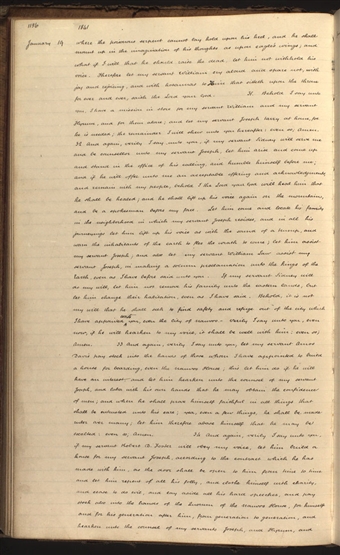 1186 1841
January 19 where the poisonous serpent cannot lay hold upon his heel, and he shall
mount up in the imagination of his thoughts as upon eagles' wings; and
what if I will that he should raise the dead, let him not withhold his
voice. Therefore let my servant William cry aloud and spare not, with
joy and rejoicing, and with hosannas to him that sitteth upon the throne
for ever and ever, saith the Lord your God. Behold I say unto
you, I have a mission in store for my servant William and my servant
Hyrum, and for them alone; and let my servant Joseph tarry at home, for
he is needed; the remainder I will show unto you hereafter; even so, Amen.
And again, verily I say unto you, if my servant Sidney will serve me
and be counsellor unto my servant Joseph, let him arise and come up
and stand in the office of his calling, and humble himself before me;
and if he will offer unto me an acceptable offering and acknowledgments
and remain with my people, behold I the Lord your God will heal him that
he shall be healed; and he shall lift up his voice again on the mountains,
and be a spokesman before my face. Let him come and locate his family
in the neighborhood in which my servant Joseph resides, and in all his
journeyings let him lift up his voice as with the sound of a trump, and
warn the inhabitants of the earth to flee the wrath to come; let him assist
my servant Joseph; and also let my servant William Law assist my
servant Joseph, in making a solemn proclamation unto the kings of the
earth, even as I have before said unto you. If my servant Sidney will
do my will, let him not remove his family unto the eastern lands, but
let him change their habitation, even as I have said. Behold, it is not
my will that he shall seek to find safety and refuge out of the city which
I have appointed unto you, even the city of Nauvoo. Verily I say unto you, even
now, if he will hearken to my voice, it shall be well with him; even so,
Amen. And again, verily I say unto you, let my servant Amos
Davis pay stock into the hands of those whom I have appointed to build
a house for boarding, even the Nauvoo House; this let him do if he will
have an interest; and let him hearken unto the counsel of my servant
Joseph, and labor with his own hands that he may obtain the confidence
of men; and when he shall prove himself faithful in all things that
shall be entrusted unto his care; yea, even a few things, he shall be made
ruler over many; let him therefore abase himself that he may be
exalted; even so, Amen. And again, verily I say unto you,
if my servant Robert D. Foster will obey my voice, let him build a
house for my servant Joseph according to the contract which he has
made with him, as the door shall be open to him from time to time
and let him repent of all his folly, and clothe himself with charity,
and cease to do evil, and lay aside all his hard speeches, and pay
stock also into the hands of the quorum of the Nauvoo House, for himself
and for his generation after him, from generation to generation, and
hearken unto the counsel of my servants Joseph, and Hyrum, and